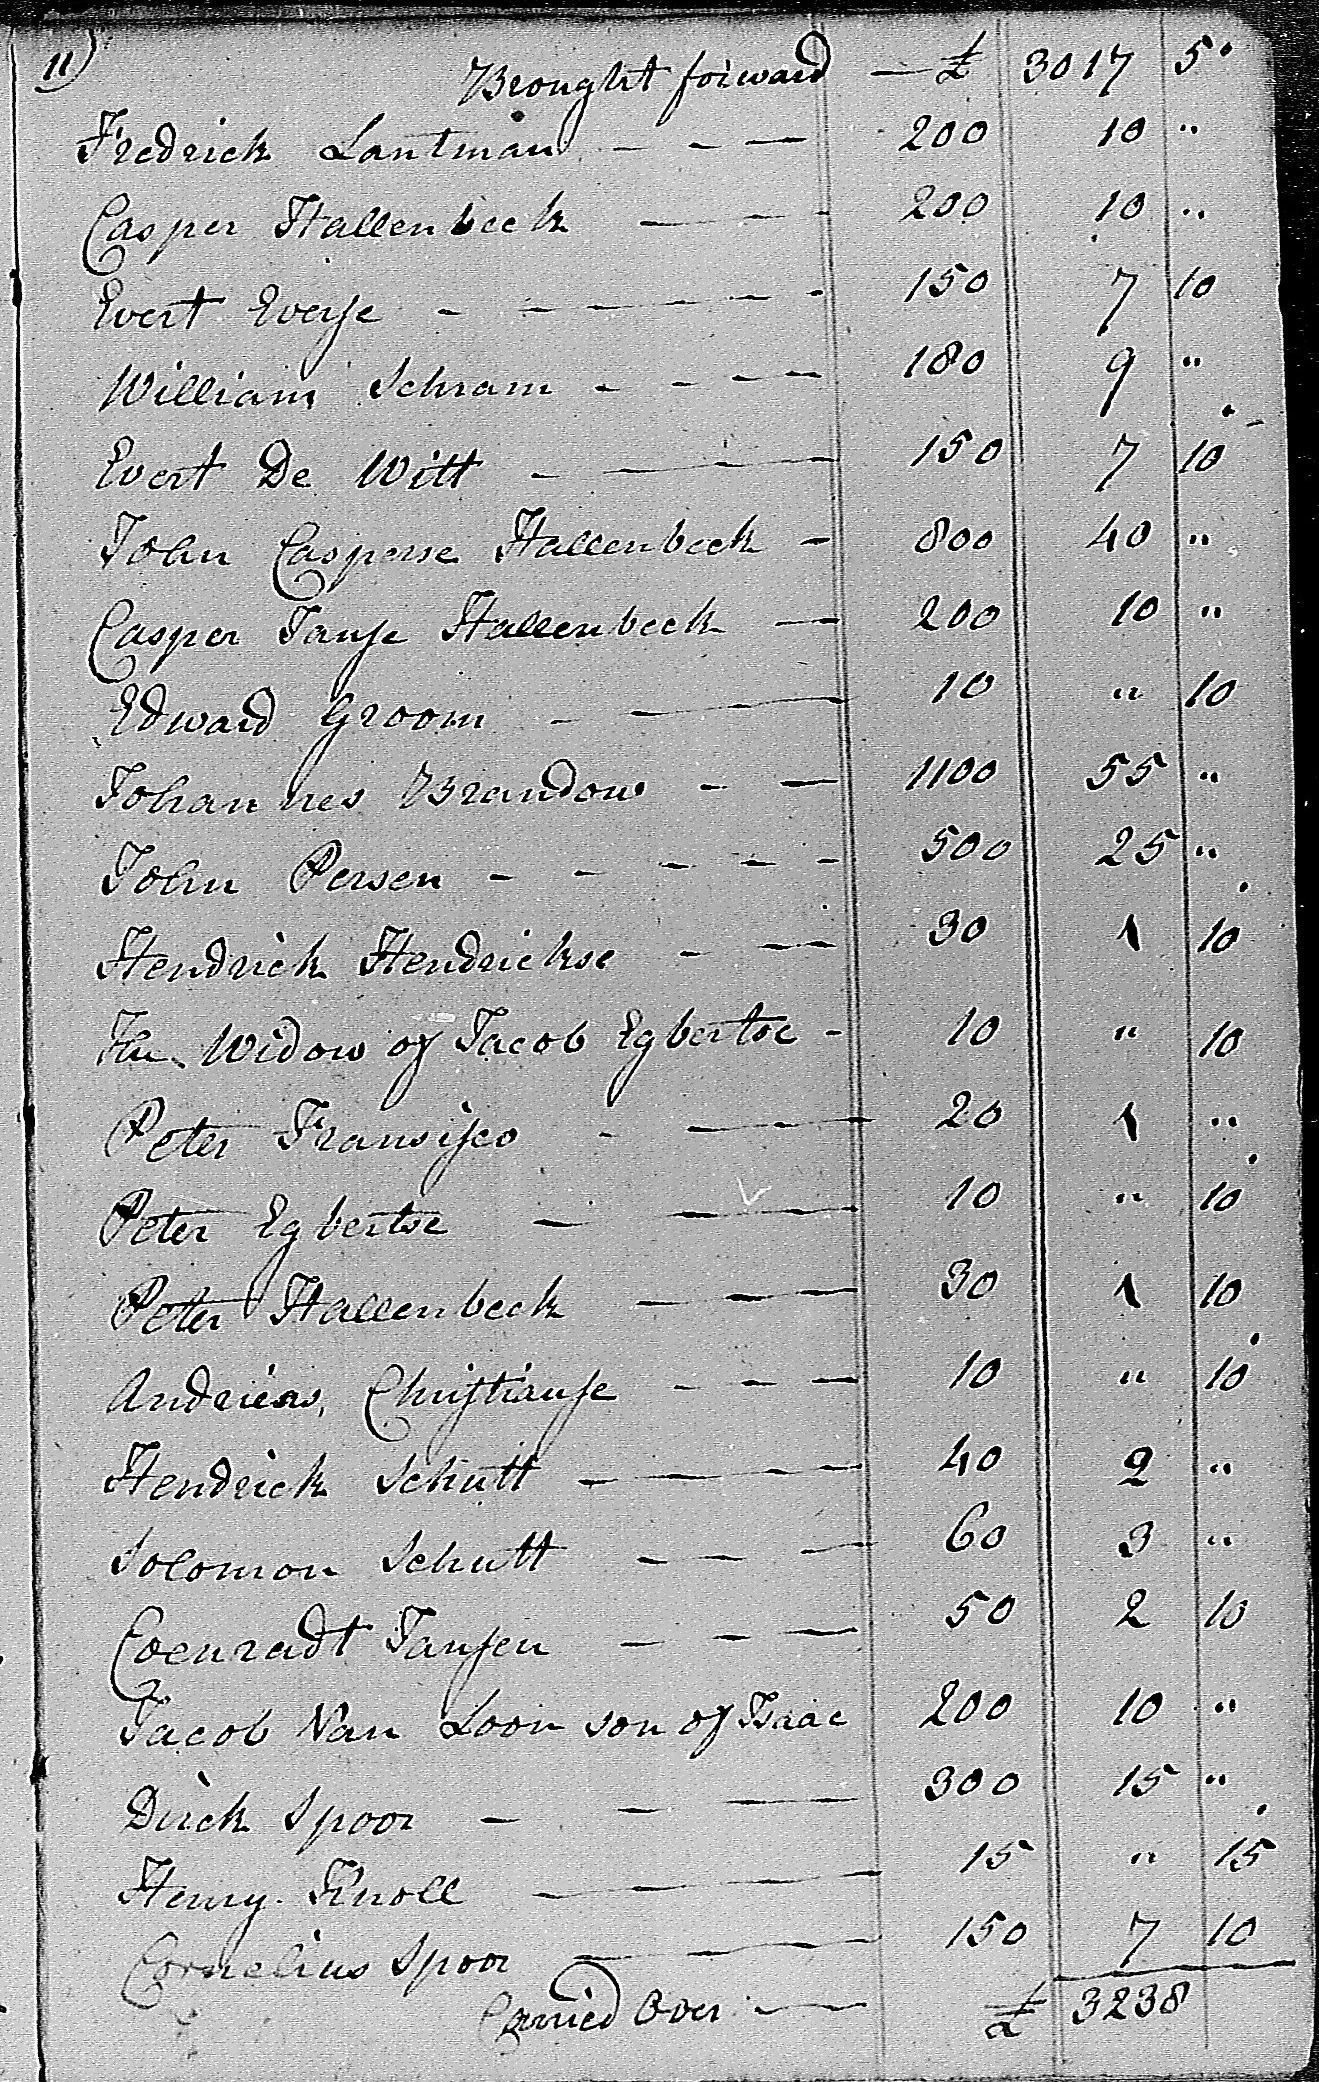 11)
Brought forward — £ 3017 5
Fredrick Lantman - - — 200 10 "
Casper Hallenbeck — - - 200 10 "
Evert Everse - - - - - 150 7 10
William Schram - - - — 180 9 "
Evert De Witt - — — 150 7 10
John Casperse Hallenbeck - 800 40 "
Casper Janse Hallenbeck — 200 10 "
Edward Groom - — — 10 " 10
Johannes Brandow - — 1100 55 "
John Persen - - - - - 500 25 "
Hendrick Hendrickse - — 30 1 10
The Widow of Jacob Egbertse - 10 " 10
Peter Fransisco - — — 20 1 "
Peter Egbertse — — — 10 " 10
Peter Hallenbeck — — — 30 1 10
Andrieas Christianse - - — 10 " 10
Hendrick Schutt - — - — 40 2 "
Solomon Schutt - - — 60 3 "
Coenradt Jansen - - — 50 2 10
Jacob Van Loon son of Isaac 200 10 "
Dirck Spoor - - — 300 15 "
Henry Knoll - — - — 15 " 15
Cornelius Spoor — - — 150 7 10
Carried Over - — £ 3238